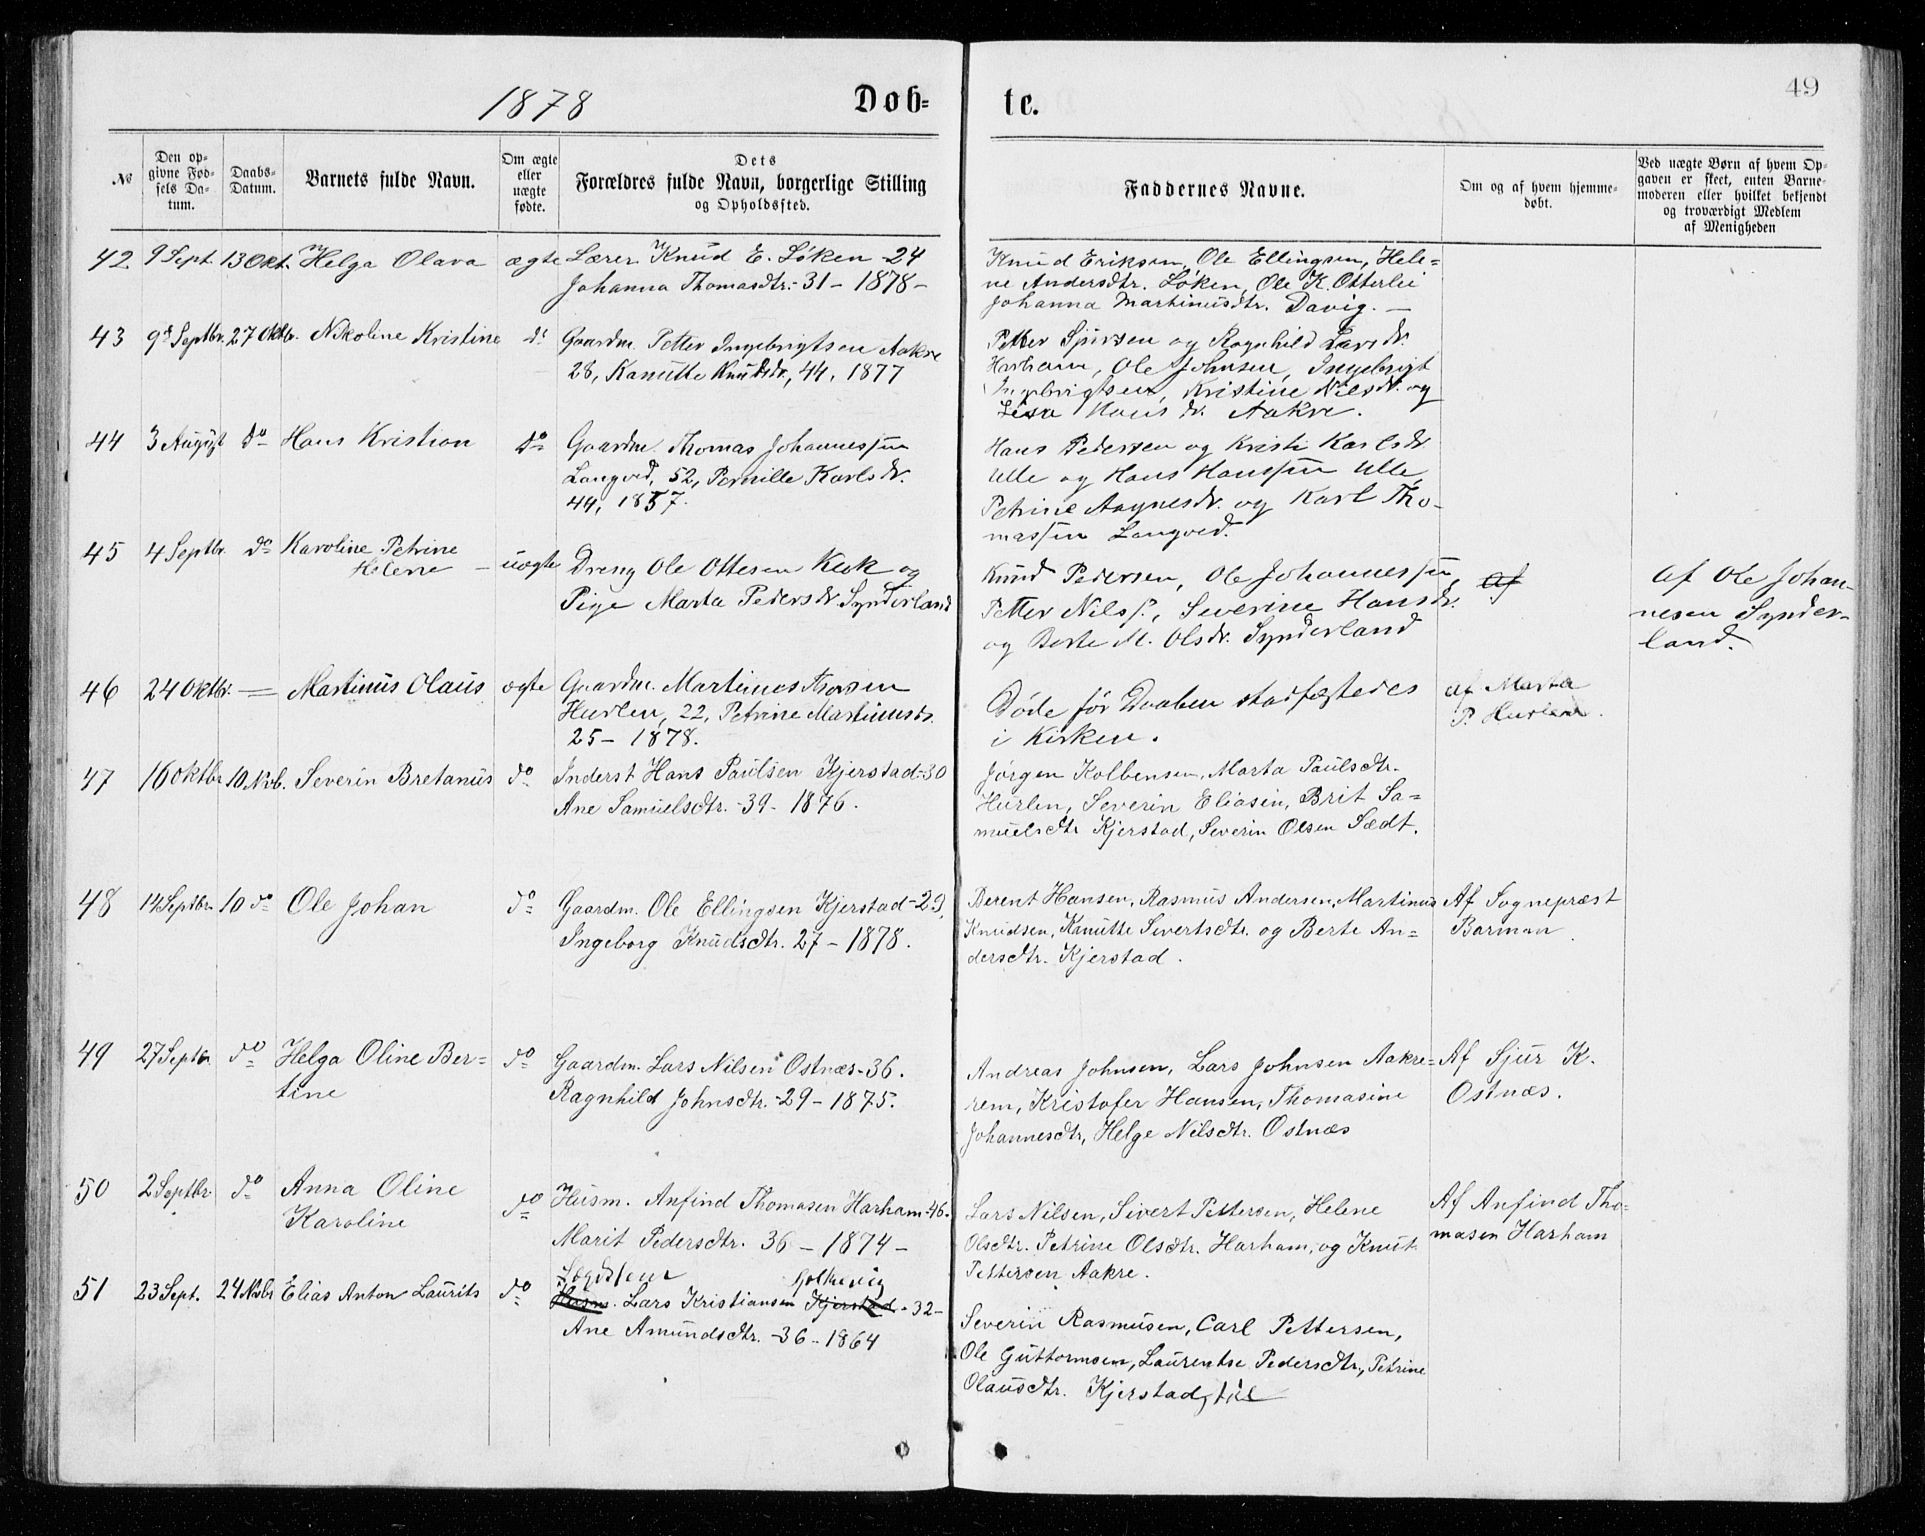 49
1878
Døb-
te.
№
Den op-
givne Fød-
sels Da-
tum.
Daabs-
Datum.
Barnets fulde Navn.
Om ægte
eller
uægte
fødte.
Dets
Forældres fulde Navn, borgerlige Stilling
og Opholdssted.
Faddernes Navne.
Om og af hvem hjemme-
døbt.
Ved uægte Børn af hvem Op-
gaven er skeet, enten Barne-
moderen eller hvilket bekjendt
og troværdigt Medlem
af Menigheden
42 9 Sept. 13 Okt. Helga Olava ægte Lærer Knud E. Löken -24
Johanna Thomasdtr. -31- 1878-
Knud Eriksen, Ole Ellingsen, Hele=
ne Andersdtr. Löken, Ole K. Otterlei
Johanna Martinusdtr. Davig. -
43 9d Septbr. 27 Oktbr. Nikoline Kristine do Gaardm. Petter Ingebrigtsen Aakre
28, Kanutte Knudsdr, 44, 1877
Petter Sjursen og Ragnhild Larsdr.
Harham, Ole Johnsen, Ingebrigt
Ingebrigtsen, Kristine Nilsdr. og
Lisa Hans dr. Aakre.
44 3 August do Hans Kristian do Gaardm. Thomas Johannessen
Langved, 52, Pernille Karlsdr.
44, 1857.
Hans Pedersen og Kristi Karlsdr
Ulle og Hans Hanssen Ulle,
Petrine Aagnesdr. og Karl Tho-
massen Langved.
45 4 Septbr. do Karoline Petrine
Helene - uægte Dreng Ole Ottesen Kwk og
Pige Marta Pedersdr. Synderland
Knud Pedersen, Ole Johannessen,
Petter Nilss., Severine Hansdr.
og Berte M. Olsdr. Synderland
Af
Af Ole Johan-
nesen Synder-
land.
46 24 Oktbr. = Martinus Olaus ægte Gaardm. Martinus Thorsen
Hurlen, 22, Petrine Martinusdr.
25- 1878.
Döde för Daaben stadfæstedes
i Kirken.
Af Marta
P. Hurlen.
47 16 Oktbr 10 Nvb. Severin Bretanus do Inderst Hans Paulsen Kjerstad -30
Ane Samuelsdtr. -39- 1876.
Jörgen Kolbensen, Marta Paulsdtr.
Hurlen, Severin Eliasen, Brit Sa=
muelsdtr Kjerstad, Severin Olsen Sædt.
48 14 Septbr 10 do Ole Johan do Gaardm. Ole Ellingsen Kjerstad -29,
Ingeborg Knudsdtr. 27- 1878.
Berent Hansen, Rasmus Andersen, Martinus
Knudsen, Kanutte Sivertsdtr. og Berte An=
dersdtr. Kjerstad.
Af Sognepræst
Barman.
49 27 Septbr do Helga Oline Ber=
tine do Gaardm. Lars Nilsen Ostnæs -36.
Ragnhild Johnsdtr. -29- 1875.
Andreas Johnsen, Lars Johnsen Aakre=
rem, Kristofer Hansen, Thomasine
Johannesdtr, Helge Nilsdtr. Ostnæs
Af Sjur K.
Ostnæs.
50 2 Septbr do Anna Oline
Karoline do Husm. Anfind Thomasen Harham -46.
Marit Pedersdtr. 36- 1874-
Lars Nilsen, Sivert Pettersen, Helene
Olsdtr. Petrine Olsdtr. Harham, og Knut
Pettersen Aakre.
Af Anfind Tho=
masen Harham
51 23 Sept. 24 Nvbr Elias Anton Laurits do Husm. Lars Kristiansen Kjerstad -32-
Ane Amundsdtr. -36- 1864
Severin Rasmusen, Carl Pettersen,
Ole Guttormsen, Laurentse Pedersdtr., Petrine
Olausdtr. Kjerstad,